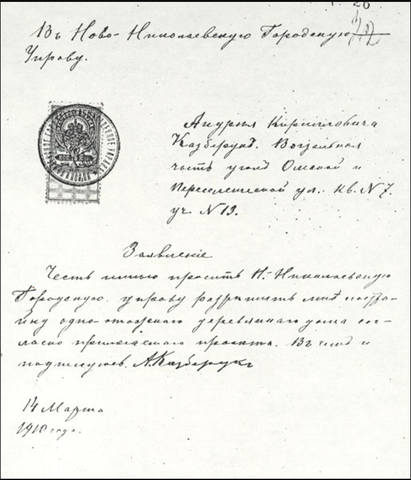 Въ Ново-Николаевскую Городскую
Управу.
Андрея Кирилловича
Казберука. Вокзальная
часть угол Омской и
Переселенческой ул. кв. N 7.
уч. N 13.
Заявление
Честь имею просить Н.-Николаевскую
Городскую управу разрешить мне построй-
ку одно-этажного деревянного дома со-
гласно прилагаемого проекта. Въ чемъ и
подписуюсь. А. Казберукъ
14 Марта
1910 года.